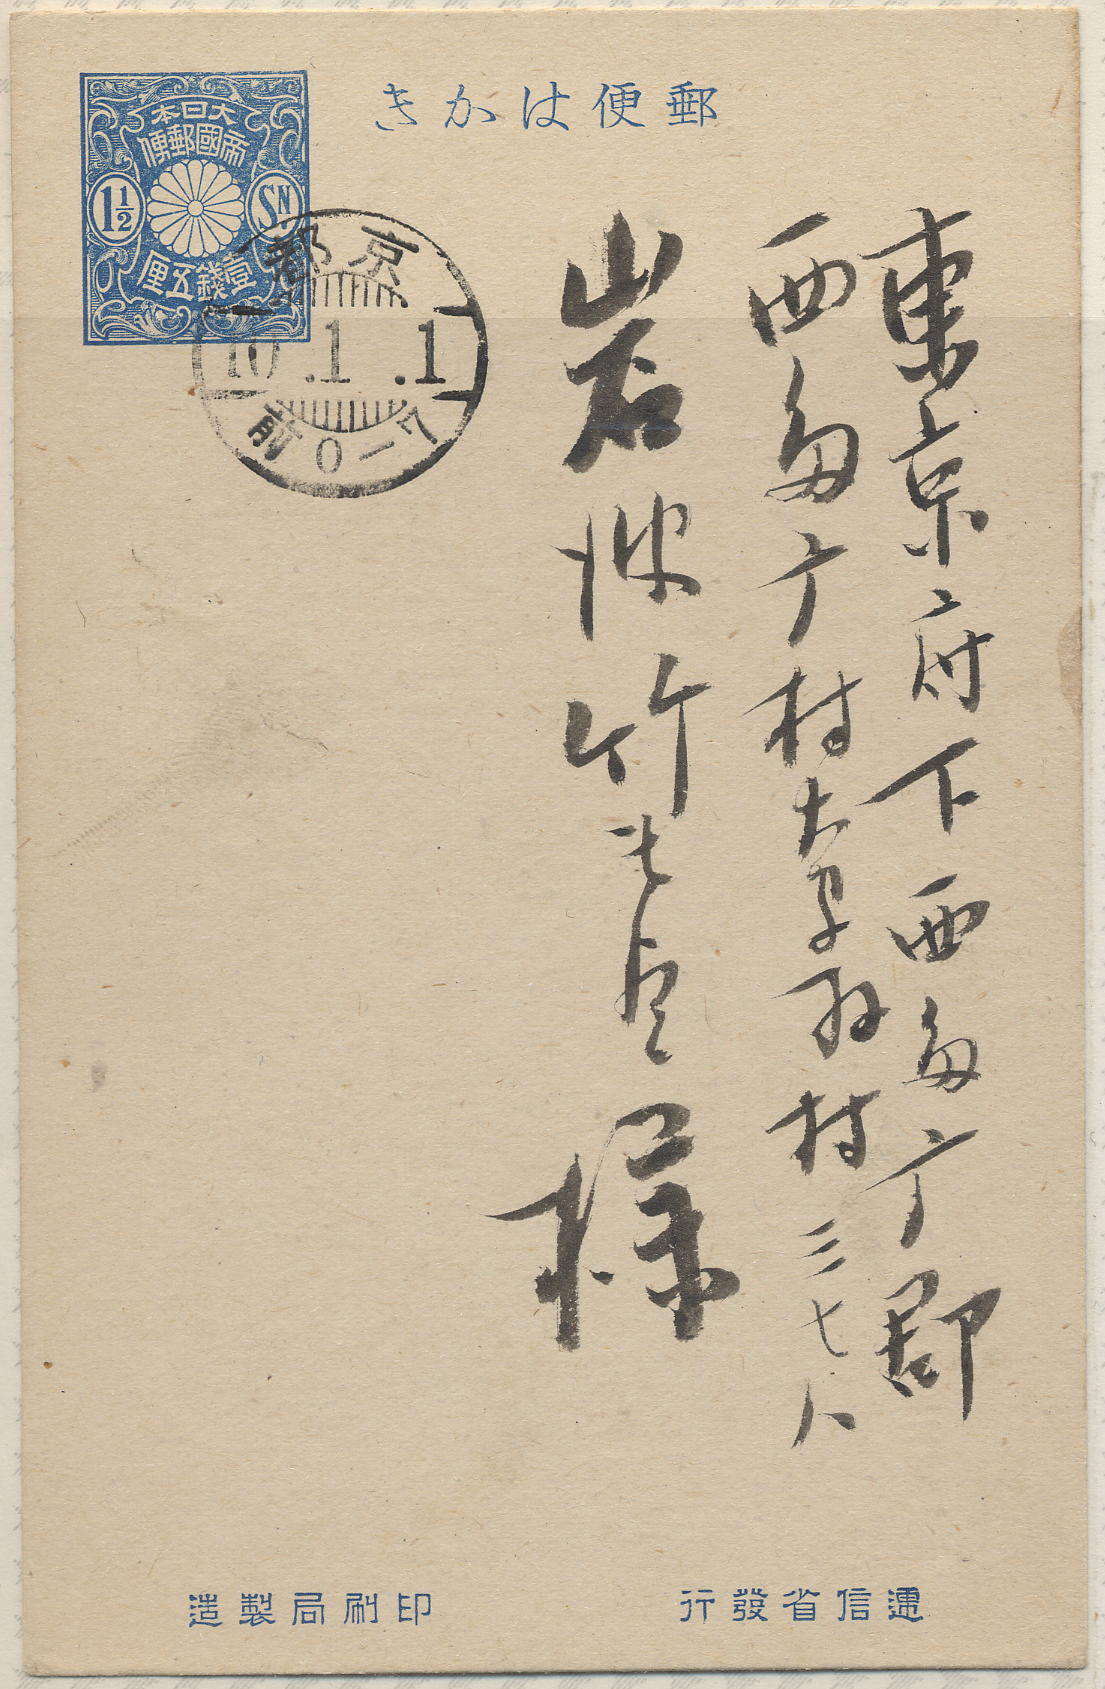 郵便はかき
大日本
帝國郵便
1½ SN
壹錢五厘
京都
10.1.1
前0-7
東京府下西多广郡
西多广村大字羽村三七八
岩波竹 様
遞信省發行
印刷局製造